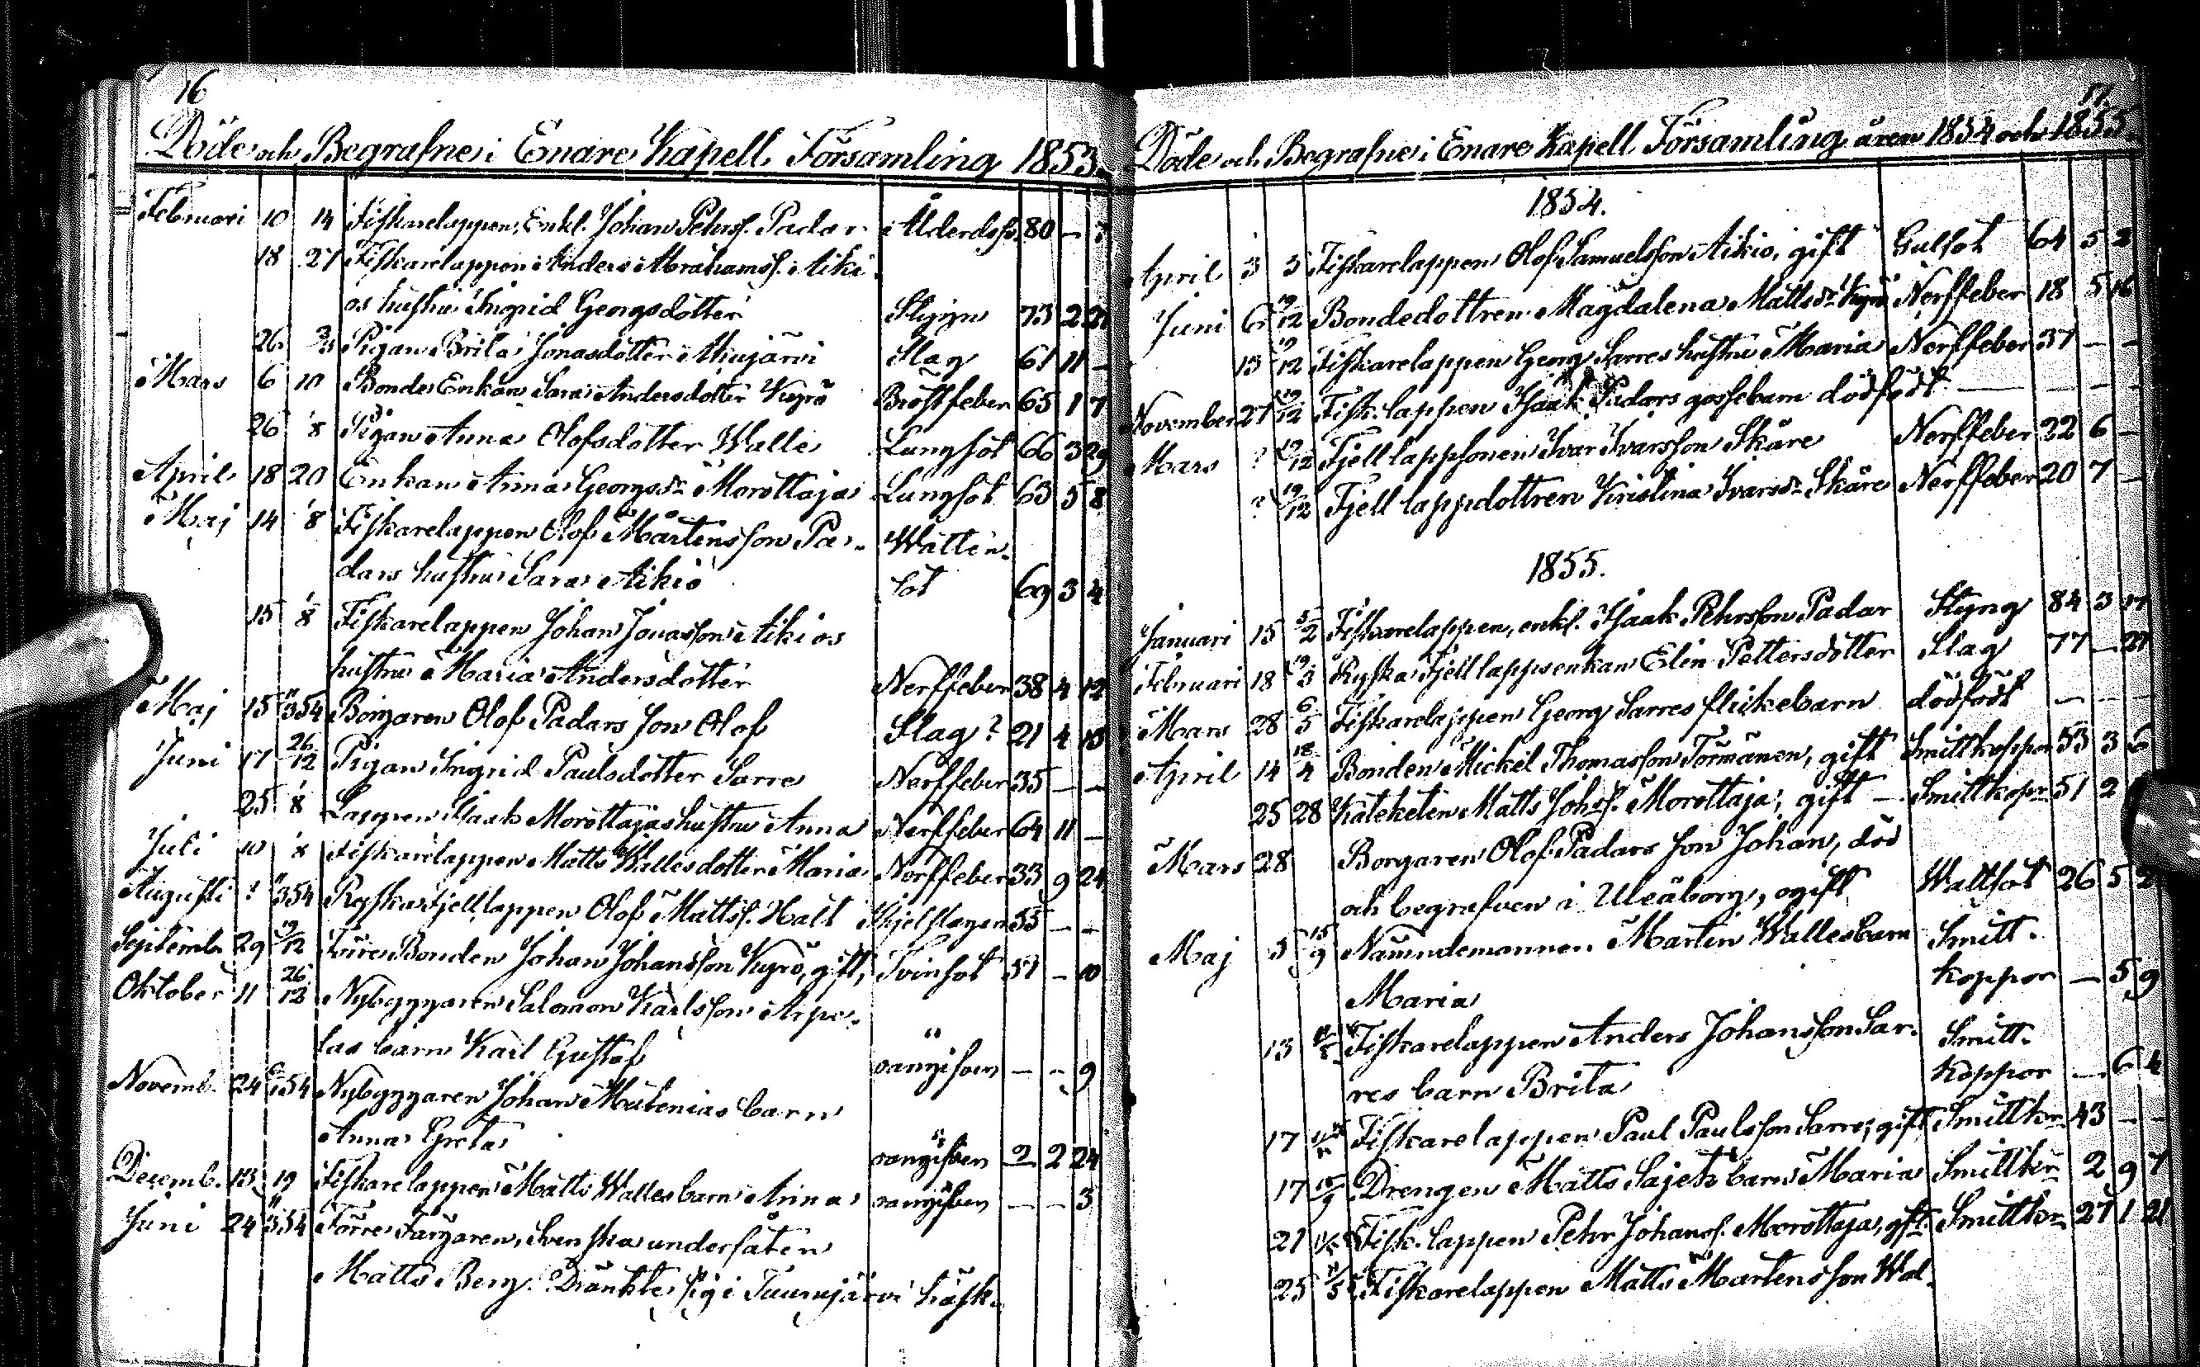 16
Döde och Begrafne i Enare Kapell Församling 1853.
Februari 10 14 Fiskarelappen, Enkl. Johan Pehrss. Padar Ålderdoms 80 –
18 27 Fiskarelappen Anders Abrahamss. Aiki
os hustru Ingrid Georgsdotter Styng 73 2
26 Pigan Brita Jonasdotter Mujärvi Slag 61 11 –
Mars 6 10 Bonde Enkan Sara Andersdotter Kyrö Bröstfeber 65 1 7
26 Pigan Anna Olofsdotter Walle Lungsot 66 3 29
April 18 20 Enkan Anna Georgsdr Morottaja Lungsot 63 5 8
Maj 14 Fiskarelappen Olof Mårtensson Pa-
dars hustru Sara Aikio Watten-
sot 69 3 4
15 Fiskarelappen Johan Jonasson Aikios
hustru Maria Andersdotter Nerffeber 38 4 12
Maj 15 Borgaren Olof Padars son Olof Slag? 21 4 13
Juni 17 26/12 Pigan Ingrid Paulsdotter Sarre Nerffeber 35 – –
25 Lappen Isaak Morottajas hustru Anna Nerffeber 64 11 –
Juli 10 Fiskarelappen Matts Walles dotter Maria Nerffeber 33 9 24
Augusti ? Ryska Fjellappen Olof Mattss. Halt Ihjelslagen 55 – –
Septemb. 29 19/12 Förre Bonden Johan Johansson Kyrö, gift, Tvinsot 51 – 10
Oktober 11 26/12 Nybyggaren Salomon Karlsson Arpe-
las barn Karl Gustaf oangifven – – 9
Novemb. 24 Nybyggaren Johan Mutenias barn
Anna Greta oangifven 2 2 24
Decemb. 13 19 Fiskarelappen Matts Walles barn Anna oangifven – – 3
Juni 24 Förre Färgaren, Svenska undersåten
Matts Berg. Dränkte sig i Tuurujärvi träsk.
17.
Döde och Begrafne i Enare Kapell Församling åren 1854 och 1855.
1854.
April 3 5 Fiskarelappen Olof Samuelsson Aikio, gift Gulsot 64 5 2
Juni 6 19/12 Bondedottren Magdalena Mattsdr Kyrö Nerffeber 18 5 16
13 19/12 Fiskarelappen Georg Sarres hustru Maria Nerffeber 37 – –
November 27 19/12 Fisk.lappen Isaak Padars gossebarn dödfödt – – –
Mars ? 19/12 Fjell lappsonen Ivar Ivarsson Skåre Nerffeber 22 6 –
? 19/12 Fjell lappdottren Kristina Ivarsdr Skåre Nerffeber 20 7 –
1855.
Januari 15 5/2 Fiskarelappen, enkl. Isaak Pehrsson Padar Styng 84 3 17
Februari 18 Ryska Fjell lappsenkan Elin Pettersdotter Slag 77 – 27
Mars 28 6/5 Fiskarelappen Georg Sarres flickebarn dödfödt – – –
April 14 18/4 Bonden Mickel Thomasson Törmänen, gift Smittkoppor 53 3 6
25 28 Kateketen Matts Johss. Morottaja, gift – Smittkopr 51 2
Mars 28 Borgaren Olof Padars son Johan, död
och begrafven i Uleåborg, ogift Wattsot 26 5
Maj 5 15/9 Nämndemannen Martin Walles barn
Maria Smitt-
koppor – 5 9
13 Fiskarelappen Anders Johansson Sar-
res barn Brita Smitt-
koppor – 6 4
17 Fiskarelappen Paul Paulsson Sarre, gift Smittkr 43 – –
17 Drengen Matts Sajets barn Maria Smittkr 2 9 7
21 Fisk.lappen Pehr Johanss. Morottaja, gft. Smittkr 27 1 21
25 Fiskarelappen Matts Martensson Wal-